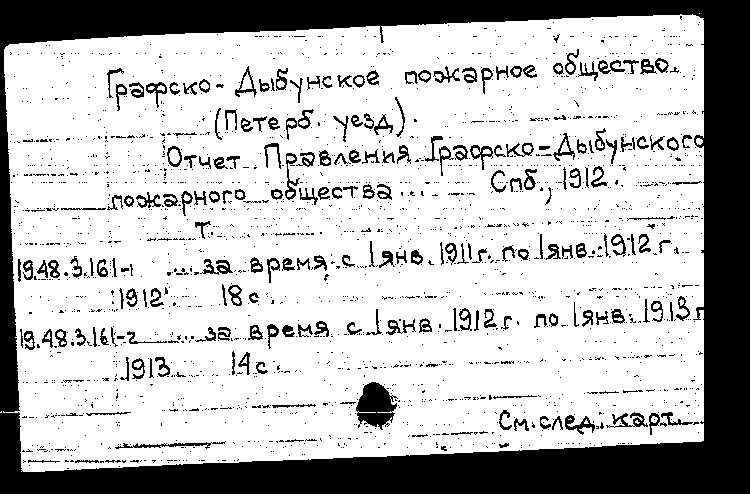 Графско-Дыбунское пожарное общество.
(Петерб. уезд).
Отчет Правления Графско-Дыбунского
пожарного общества... Спб., 1912.
т.
19.48.3.161-1 ... за время с 1 янв. 1911 г. по 1 янв. 1912 г.
1912. 18 с.
19.48.3.161-2 ... за время с 1 янв. 1912 г. по 1 янв. 1913 г
1913. 14 с.
См. след. карт.